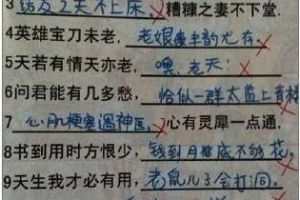 3 结发2天不上床, 糟糠之妻不下堂.
4英雄宝刀未老, 老娘丰韵尤存.
5天若有情天亦老, 噢,老天!
6问君能有几多愁, 恰似一群太监上青楼
7 心肌梗塞遇神医, 心有灵犀一点通,
8书到用时方恨少, 钱到月底不够花,
9天生我才必有用, 老鼠儿子会打洞.